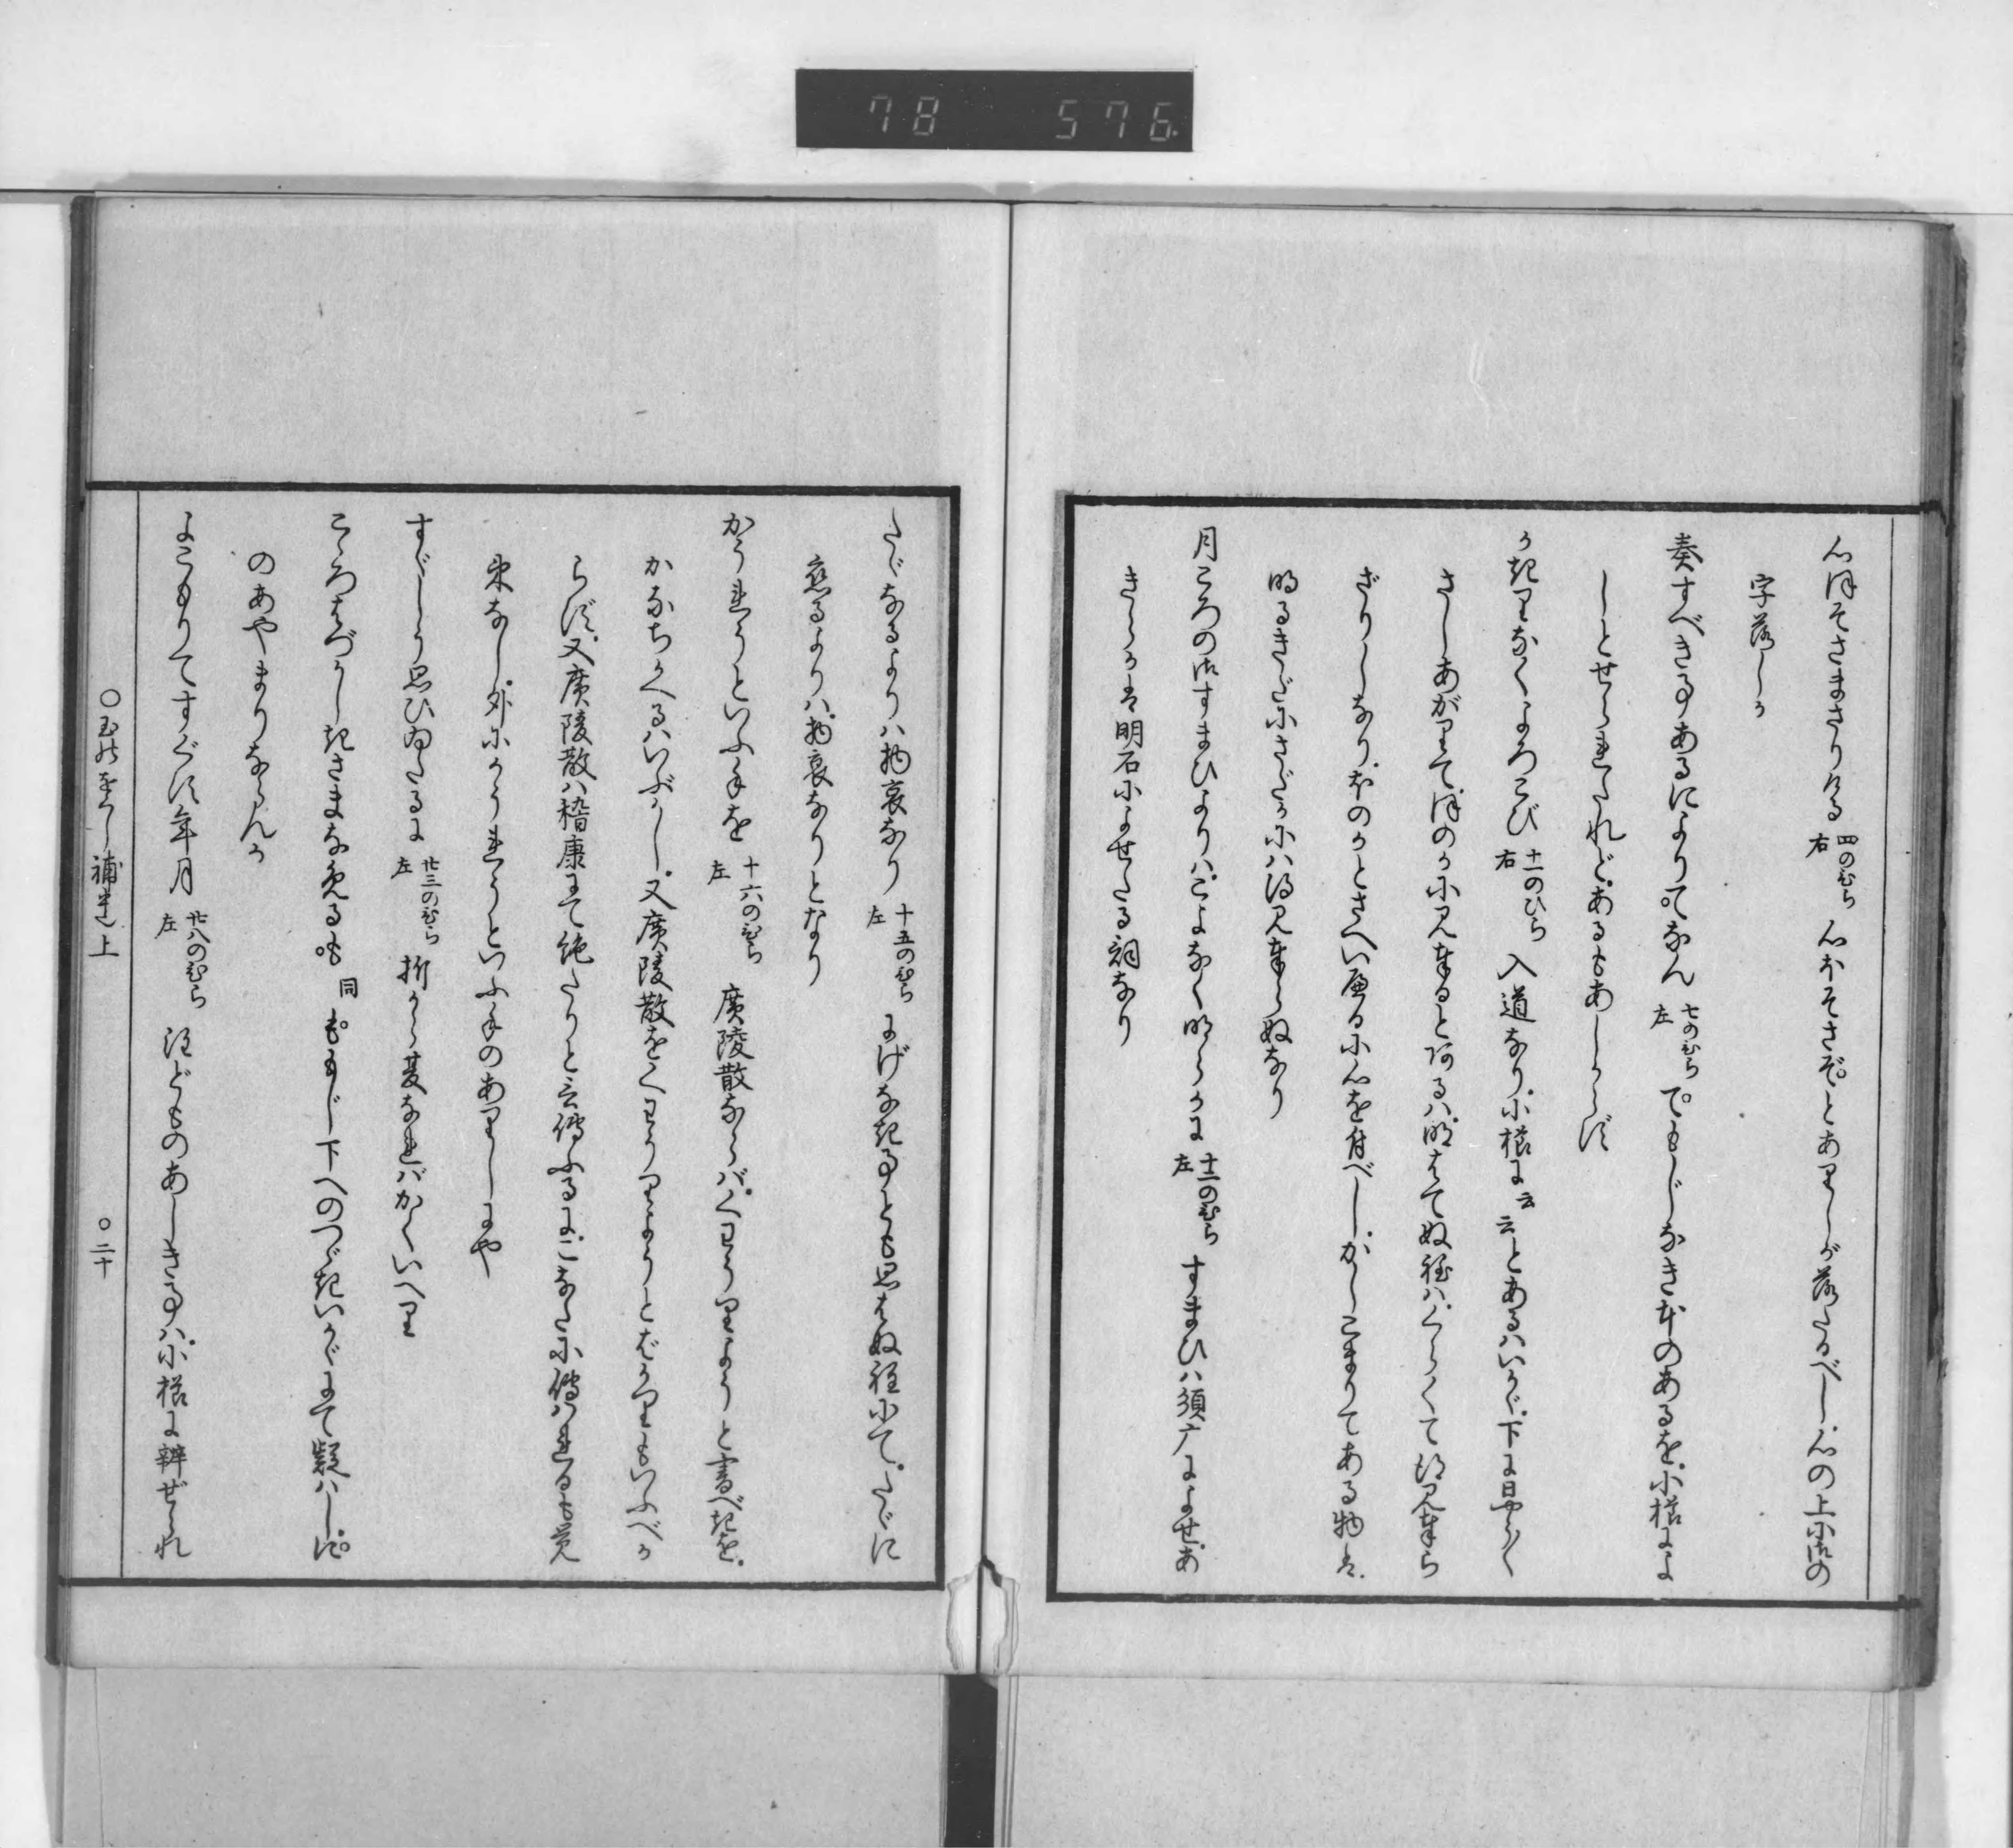 78 576
心ほそさまさりける 四のひら右 心ぼそさぞとありしが落たるべし、心の上に御の
字落しか
奏すべき事あるによりてなん 七のひら左 でもじなき本のあるを、小櫛によ
しとせられたれど、あるもあしからず
かぎりなくよろこび 十一のひら右 入道なり、小櫛に云云とあるハいかゞ、下に日やうく
さしあがりて、ほのかに見奉るとあるハ、明はてぬ程ハ、くらくて得見奉ら
ざりしなり、ほのかとさへいへるに心を付べし、かしこまりてある物は、
明るきだにさだかにハ得見奉らぬなり
月ころの御すまひよりハ、こよなく明らかに 十二のひら左 すまひハ須广によせ、あ
きらかは明石によせたる詞なり
たゞなるよりハ物哀なり 十五のひら左 にげなき事とも思はぬ程にて、たゞに
應るよりハ、物哀なりとなり
かうれうといふ手を 十六のひら左 廣陵散ならバ、くわうりようと書べきを、
かなちがへるハいぶかし、又廣陵散をくわうりようとばかりもいふべか
らず、又廣陵散ハ稽康にて絶たりと云傳ふるに、こなたに傳ハれるも覚
束なし、外にかうれうといふ手のありしにや
すゞしう思ひゐたるに 廿三のひら左 折から夏なれバかくいへり
こゝろはづかしきさまなめるも 同 もゝじ下へのつゞきいかゞにて疑ハし、ず
のあやまりならんか
よこもりてすぐす年月 廿八のひら左 注どものあしき事ハ、小櫛に辨ぜられ
〇玉の をぐし補遺上 〇二十